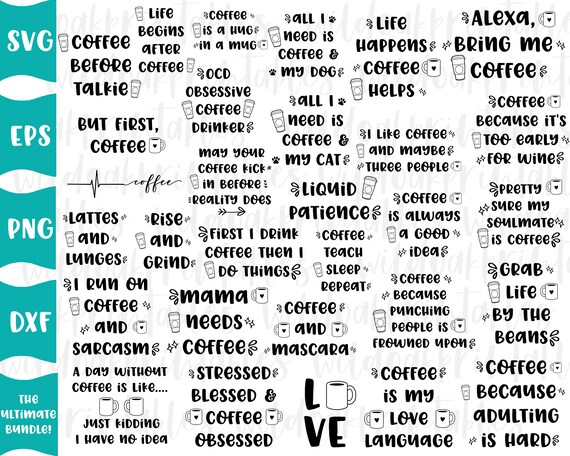 SVG
EPS
PNG
DXF
THE
ULTIMATE
BUNDLE!
COFFEE
BEFORE
TALKIE
LIFE
BEGINS
AFTER
COFFEE
COFFEE
IS A HUG
IN A MUG
ALL I
NEED IS
COFFEE &
MY DOG
LIFE
HAPPENS
COFFEE
HELPS
ALEXA,
BRING ME
COFFEE
BUT FIRST,
COFFEE
OCD
OBSESSIVE
COFFEE
DRINKER
ALL I
NEED IS
COFFEE &
MY CAT
I LIKE COFFEE
AND MAYBE
THREE PEOPLE
COFFEE
BECAUSE IT'S
TOO EARLY
FOR WINE
coffee
MAY YOUR
COFFEE KICK
IN BEFORE
REALITY DOES
LIQUID
PATIENCE
COFFEE
IS ALWAYS
A GOOD
IDEA
PRETTY
SURE MY
SOULMATE
IS COFFEE
LATTES
AND
LUNGES
RISE
AND
GRIND
FIRST I DRINK
COFFEE THEN I
DO THINGS
COFFEE
TEACH
SLEEP
REPEAT
COFFEE
BECAUSE
PUNCHING
PEOPLE IS
FROWNED UPON
GRAB
LIFE
BY THE
BEANS
I RUN ON
COFFEE
AND
SARCASM
MAMA
NEEDS
COFFEE
COFFEE
AND
MASCARA
A DAY WITHOUT
COFFEE IS LIKE....
JUST KIDDING
I HAVE NO IDEA
STRESSED
BLESSED &
COFFEE
OBSESSED
L
VE
COFFEE
IS MY
LOVE
LANGUAGE
COFFEE
BECAUSE
ADULTING
IS HARD